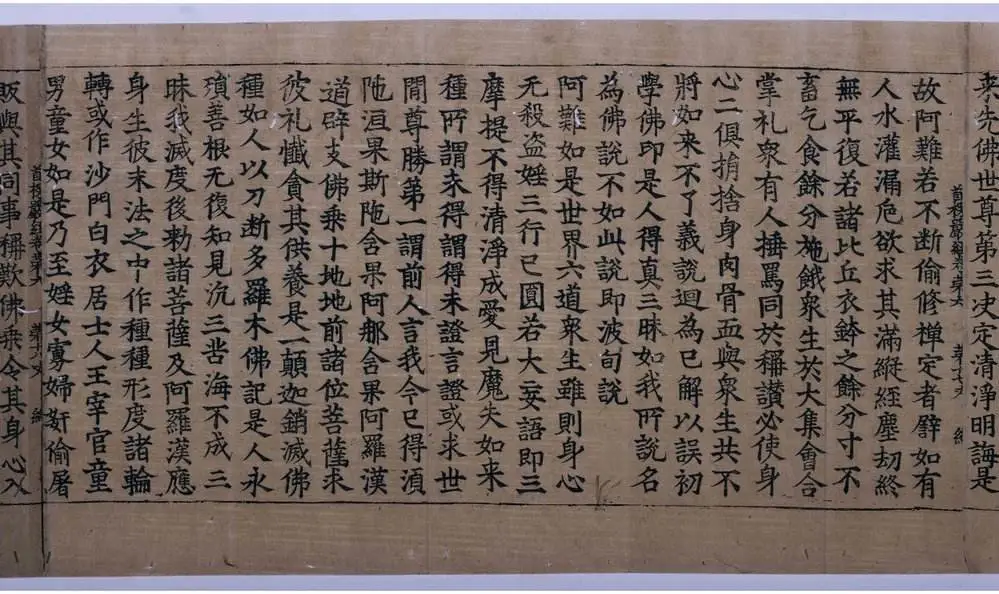 来先佛世尊第三決定清淨明誨是
首楞嚴經卷第六 第七丈
故阿難若不断偷修禅定者譬如有
人水灌漏卮欲求其滿縱經塵刼終
無平復若諸比丘衣鉢之餘分寸不
畜乞食餘分施餓衆生於大集會合
掌礼衆有人捶罵同於稱讃必使身
心二俱捐捨身肉骨血與衆生共不
將如来不了義說迴為已解以誤初
學佛印是人得真三昧如我所說名
為佛說不如此說即波旬說
阿難如是世界六道衆生雖則身心
无殺盗婬三行已圓若大妄語即三
摩提不得清淨成愛見魔失如来
種所謂未得謂得未證言證或求世
間尊勝第一謂前人言我今已得湏
陁洹果斯陁含果阿那含果阿羅漢
道辟支佛乘十地地前諸位菩薩求
彼礼懺貪其供養是一顛迦銷滅佛
種如人以刀断多羅木佛記是人永
殞善根无復知見沉三苦海不成三
昧我滅度後勑諸菩薩及阿羅漢應
身生彼末法之中作種種形度諸輪
轉或作沙門白衣居士人王宰官童
男童女如是乃至婬女寡婦姧偷屠
首楞嚴經卷第六 第八丈
販與其同事稱歎佛乘令其身心入